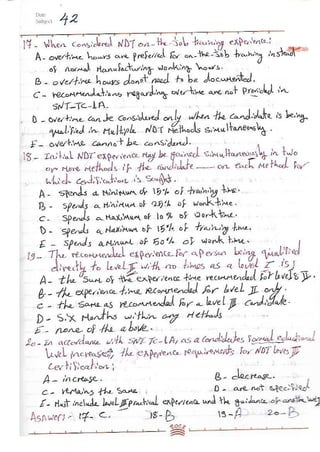 Date:
Subject: 42
17- When considered NDT on-the-Job training experience:
A- overtime hours are preferred for on-the-Job training instead
of normal Manufacturing working hours.
B- overtime hours donot need to be documented.
C- recommendations regarding overtime are not Provided in
SNT-TC-1A.
D- overtime can be Considered only when the candidate is being
qualified in Multiple NDT Methods Simultaneously.
E- overtime cannot be considered.
18- Initial NDT experience May be gained Simultaneously in two
or More Methods if the candidate —— on each Method for
which Certification is Sought.
A- Spends a Minimum of 15% of training time.
B- Spends a Minimum of 25% of work time.
C- Spends a Maximum of 10% of Work time.
D- Spends a Maximum of 15% of training time.
E- Spends a Minimum of 50% of Work time.
19- The recommended experience for a person being qualified
directly to level II with no times as a level I is;
A- the Sum of the experience time recommended for levels II.
B- the experience time Recommended for level II only.
C- the Same as recommended for a level III candidate.
D- Six Months within any Methods.
E- none of the above.
20- In accordance with SNT-TC-1A, as a candidates formal educational
level increases, the experience requirements for NDT level III
Certification;
A- increase. B- decrease.
C- remains the Same. D- are not Specified
E- Must include level III practical experience and the guidance of another
Answers: 17- C. 18-B 19-A 20-B